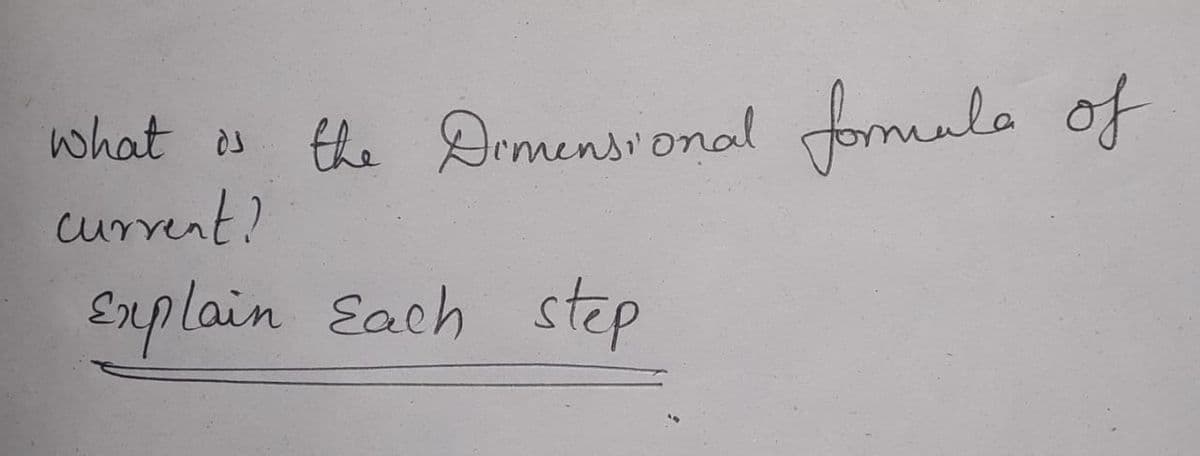 What is the Dimensional formula of
current?
Explain Each step